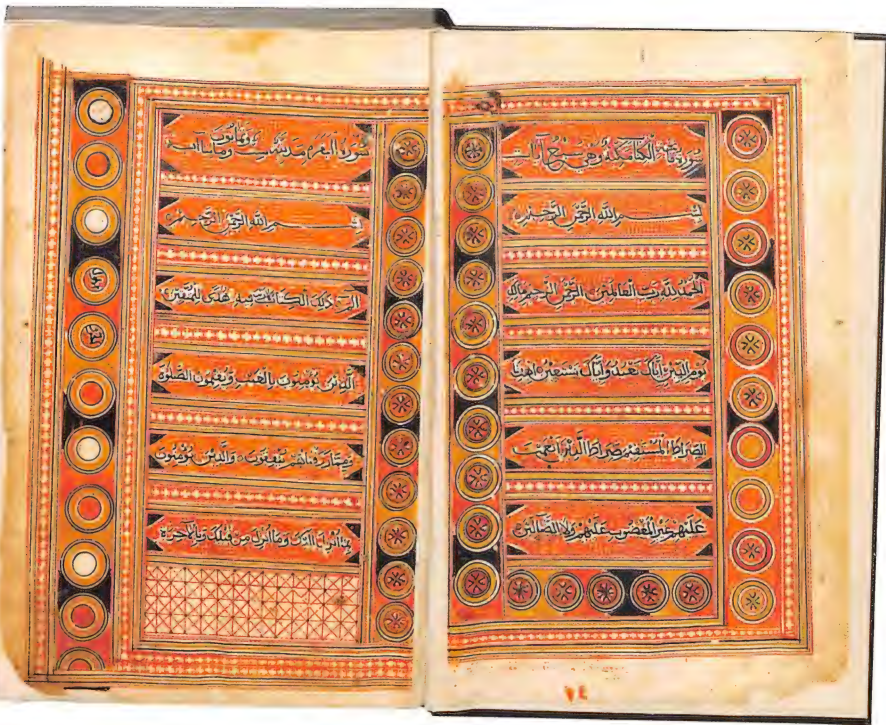 سورة فاتحة الكتاب وهي سبع آيات
بسم الله الرحمن الرحيم
الحمد لله رب العالمين الرحمن الرحيم ملك
يوم الدين اياك نعبد واياك نستعين اهدنا
الصراط المستقيم صراط الذين انعمت
عليهم غير المغضوب عليهم ولا الضالين
سورة البقرة مائتان وثمانون
بسم الله الرحمن الرحيم
الم ذلك الكتاب لا ريب فيه هدى للمتقين
الذين يؤمنون بالغيب ويقيمون الصلوة
ومما رزقناهم ينفقون والذين يؤمنون
بما انزل اليك وما انزل من قبلك وبالآخرة
٧٤